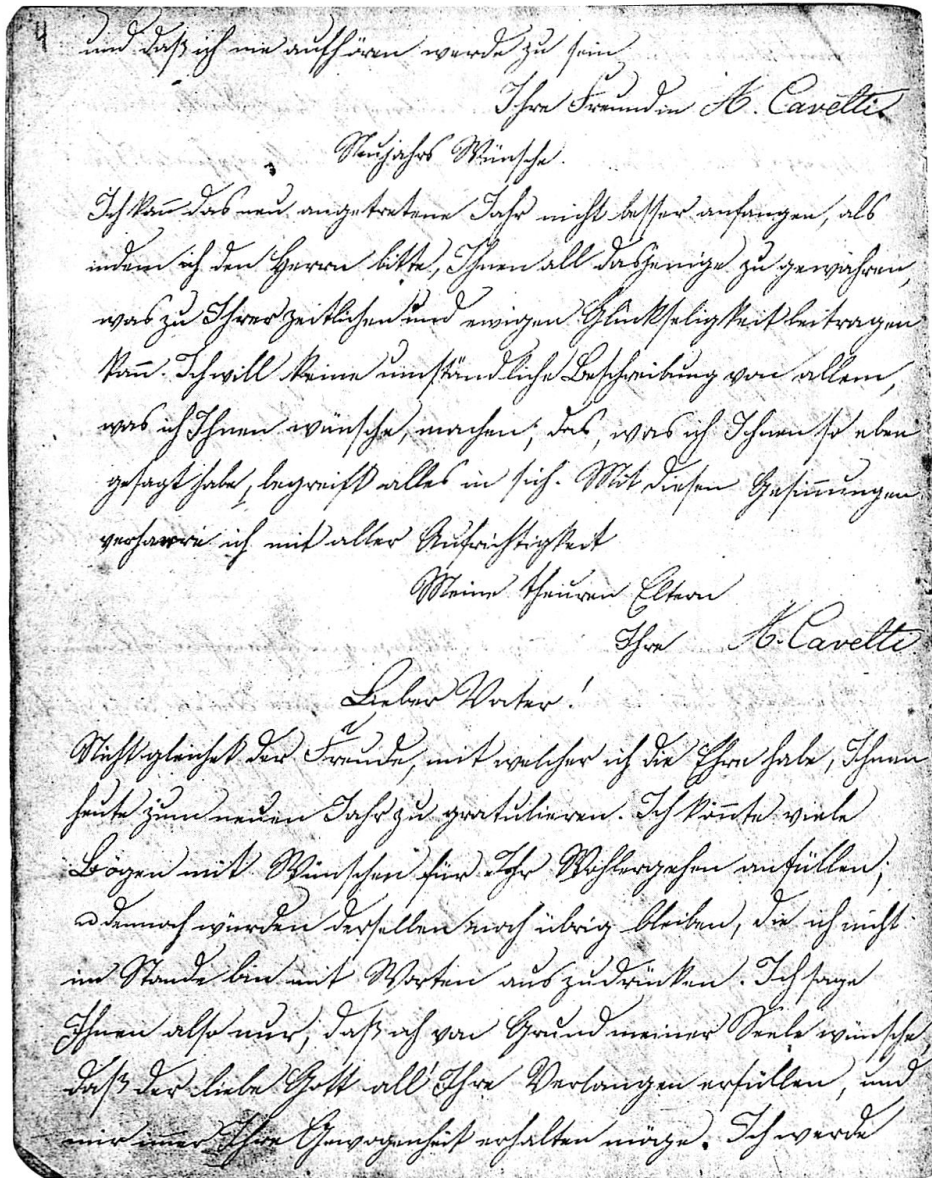 4
und daß ich nie aufhören werde zu sein
Ihre Freundin A. Cavelti.
Neujahrs Wünsche.
Ich kann̄ das neu angetretene Jahr nicht besser anfangen, als
indem ich den Herrn bitte, Ihnen all dasjenige zu gewähren,
was zu Ihrer zeitlichen und ewigen Glückseligkeit beitragen
kan̄. Ich will keine umständliche Beschreibung von allem,
was ich Ihnen wünsche, machen; das, was ich Ihnen so eben
gesagt habe, begreift alles in sich. Mit diesen Gesin̄ungen
verharre ich mit aller Aufrichtigkeit
Meine theuren Eltern
Ihre A. Cavelti
Lieber Vater!
Nichts gleichet der Freude, mit welcher ich die Ehre habe, Ihnen
heute zum neuen Jahr zu gratulieren. Ich kön̄te viele
Bögen mit Wünschen für Ihr Wohlergehen anfüllen;
u dennoch würden derselben noch übrig bleiben, die ich nicht
im Stande bin mit Worten auszudrücken. Ich sage
Ihnen also nur, daß ich von Grund meiner Seele wünsche,
daß der liebe Gott all Ihre Verlangen erfüllen, und
mir immer Ihre Gewogenheit erhalten möge. Ich werde